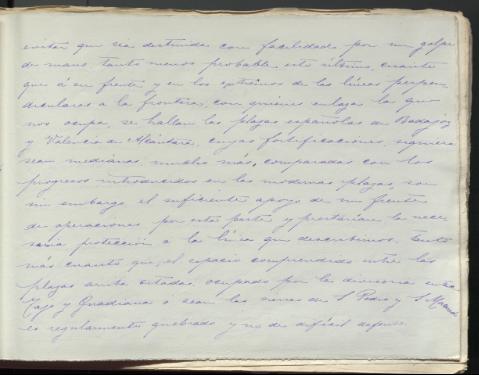 evitar que sea destruida con facilidad por un golpe
de mano, tanto menos probable este último, cuanto
que á su frente y en los extremos de las líneas perpen-
diculares a la frontera, con quienes enlaza la que
nos ocupa, se hallan las plazas españolas de Badajoz
y Valencia de Alcántara, cuyas fortificaciones, siquiera
sean medianas, mucho más, comparadas con los
progresos introducidos en las modernas plazas, son
sin embargo el suficiente apoyo de un frente
de operaciones por esta parte y prestarían la nece-
saria protección a la línea que describimos, tanto
más cuanto que, el espacio comprendido entre las
plazas antes citadas, ocupado por la divisoria entre
Tajo y Guadiana ó sean las sierras de S. Pedro y S. Mamed
es regularmente quebrado y no de difícil defensa.